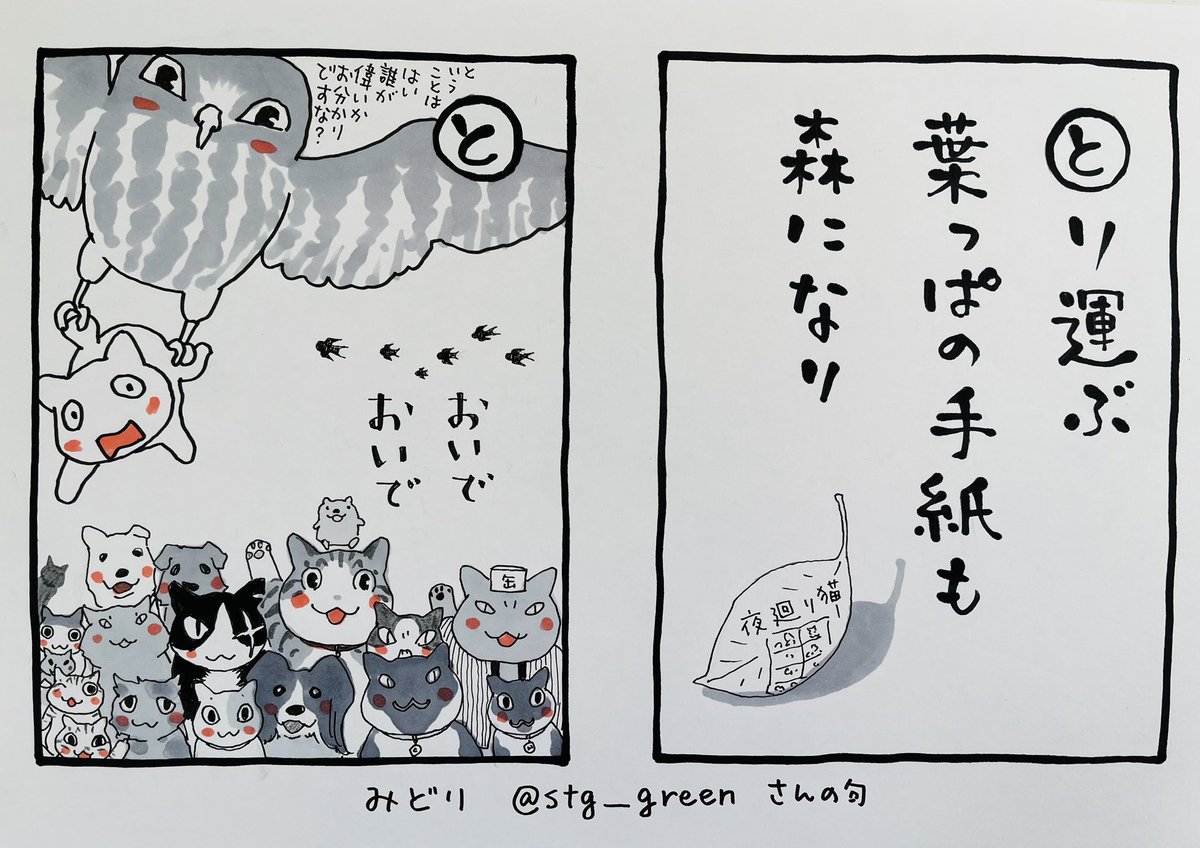 とり運ぶ
葉っぱの手紙も
森になり
夜廻り猫
と
という
ことは
はい
誰が
偉いか
お分かり
ですな？
おいで
おいで
缶
みどり @stg_green さんの句